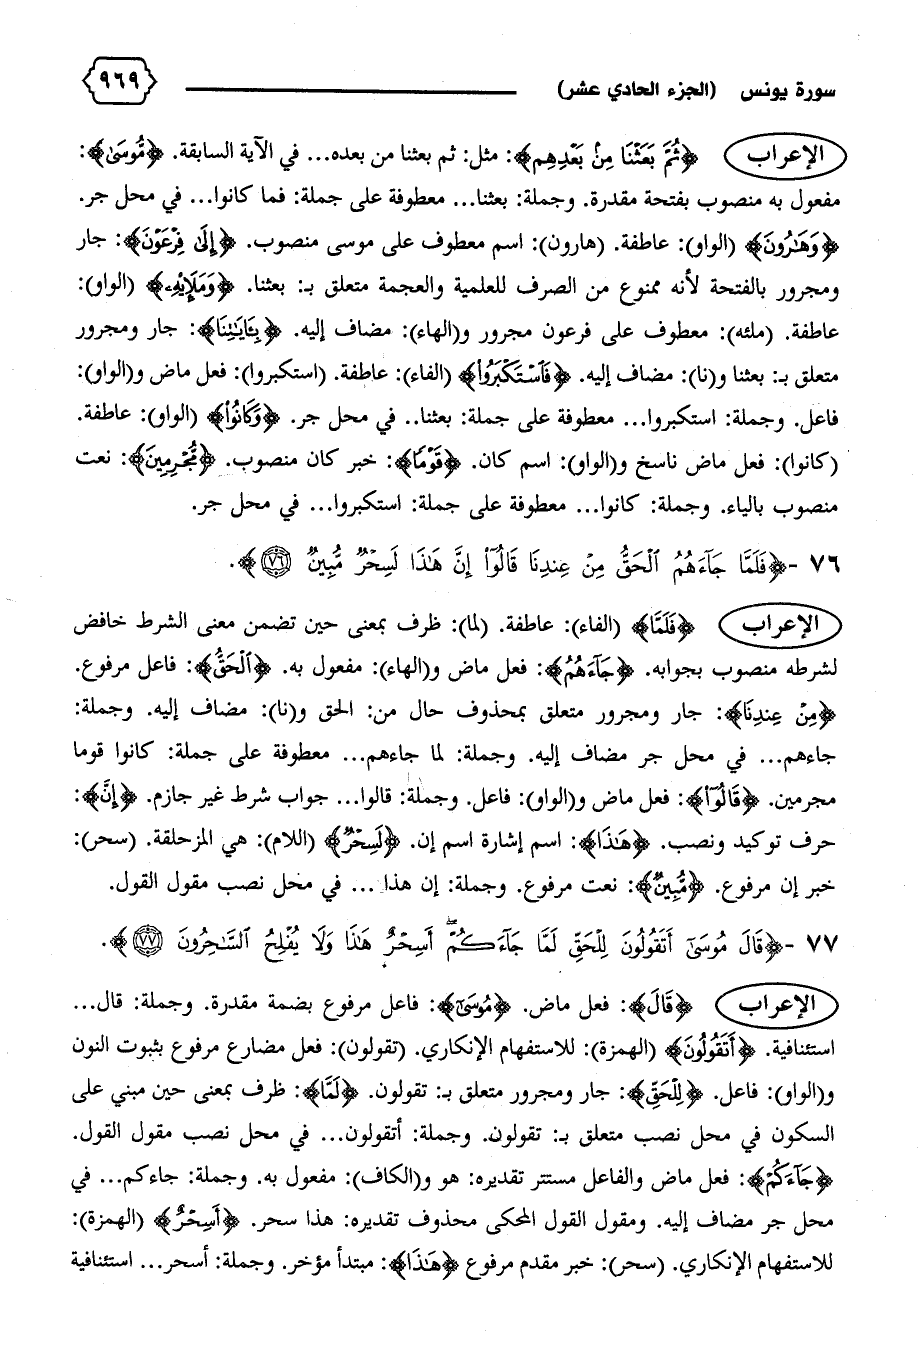 سورة يونس (الجزء الحادي عشر) ٩٦٩
الإعراب ﴿ثُمَّ بَعَثْنَا مِنْ بَعْدِهِم﴾: مثل: ثم بعثنا من بعده... في الآية السابقة. ﴿مُّوسَىٰ﴾:
مفعول به منصوب بفتحة مقدرة. وجملة: بعثنا... معطوفة على جملة: فما كانوا... في محل جر.
﴿وَهَٰرُونَ﴾ (الواو): عاطفة. (هارون): اسم معطوف على موسى منصوب. ﴿إِلَىٰ فِرْعَوْنَ﴾: جار
ومجرور بالفتحة لأنه ممنوع من الصرف للعلمية والعجمة متعلق بـ: بعثنا. ﴿وَمَلَإِيْهِۦ﴾ (الواو):
عاطفة. (ملئه): معطوف على فرعون مجرور و(الهاء): مضاف إليه. ﴿بِـَٔايَٰتِنَا﴾: جار ومجرور
متعلق بـ: بعثنا و(نا): مضاف إليه. ﴿فَٱسْتَكْبَرُوا۟﴾ (الفاء): عاطفة. (استكبروا): فعل ماض و(الواو):
فاعل. وجملة: استكبروا... معطوفة على جملة: بعثنا.. في محل جر. ﴿وَكَانُوا۟﴾ (الواو): عاطفة.
(كانوا): فعل ماض ناسخ و(الواو): اسم كان. ﴿قَوْمًا﴾: خبر كان منصوب. ﴿مُّجْرِمِينَ﴾: نعت
منصوب بالياء. وجملة: كانوا... معطوفة على جملة: استكبروا... في محل جر.
٧٦ -﴿فَلَمَّا جَآءَهُمُ ٱلْحَقُّ مِنْ عِندِنَا قَالُوٓا۟ إِنَّ هَٰذَا لَسِحْرٌ مُّبِينٌ ٧٦﴾.
الإعراب ﴿فَلَمَّا﴾ (الفاء): عاطفة. (لما): ظرف بمعنى حين تضمن معنى الشرط خافض
لشرطه منصوب بجوابه. ﴿جَآءَهُمُ﴾: فعل ماض و(الهاء): مفعول به. ﴿ٱلْحَقُّ﴾: فاعل مرفوع.
﴿مِنْ عِندِنَا﴾: جار ومجرور متعلق بمحذوف حال من: الحق و(نا): مضاف إليه. وجملة:
جاءهم... في محل جر مضاف إليه. وجملة: لما جاءهم... معطوفة على جملة: كانوا قوما
مجرمين. ﴿قَالُوٓا۟﴾: فعل ماض و(الواو): فاعل. وجملة: قالوا... جواب شرط غير جازم. ﴿إِنَّ﴾:
حرف توكيد ونصب. ﴿هَٰذَا﴾: اسم إشارة اسم إن. ﴿لَسِحْرٌ﴾ (اللام): هي المزحلقة. (سحر):
خبر إن مرفوع. ﴿مُّبِينٌ﴾: نعت مرفوع. وجملة: إن هذا ... في محل نصب مقول القول.
٧٧ -﴿قَالَ مُوسَىٰٓ أَتَقُولُونَ لِلْحَقِّ لَمَّا جَآءَكُمْ ۖ أَسِحْرٌ هَٰذَا وَلَا يُفْلِحُ ٱلسَّٰحِرُونَ ٧٧﴾.
الإعراب ﴿قَالَ﴾: فعل ماض. ﴿مُوسَىٰٓ﴾: فاعل مرفوع بضمة مقدرة. وجملة: قال...
استئنافية. ﴿أَتَقُولُونَ﴾ (الهمزة): للاستفهام الإنكاري. (تقولون): فعل مضارع مرفوع بثبوت النون
و(الواو): فاعل. ﴿لِلْحَقِّ﴾: جار ومجرور متعلق بـ: تقولون. ﴿لَمَّا﴾: ظرف بمعنى حين مبني على
السكون في محل نصب متعلق بـ: تقولون. وجملة: أتقولون... في محل نصب مقول القول.
﴿جَآءَكُمْ﴾: فعل ماض والفاعل مستتر تقديره: هو و(الكاف): مفعول به. وجملة: جاءكم... في
محل جر مضاف إليه. ومقول القول المحكى محذوف تقديره: هذا سحر. ﴿أَسِحْرٌ﴾ (الهمزة):
للاستفهام الإنكاري. (سحر): خبر مقدم مرفوع ﴿هَٰذَا﴾: مبتدأ مؤخر. وجملة: أسحر... استئنافية